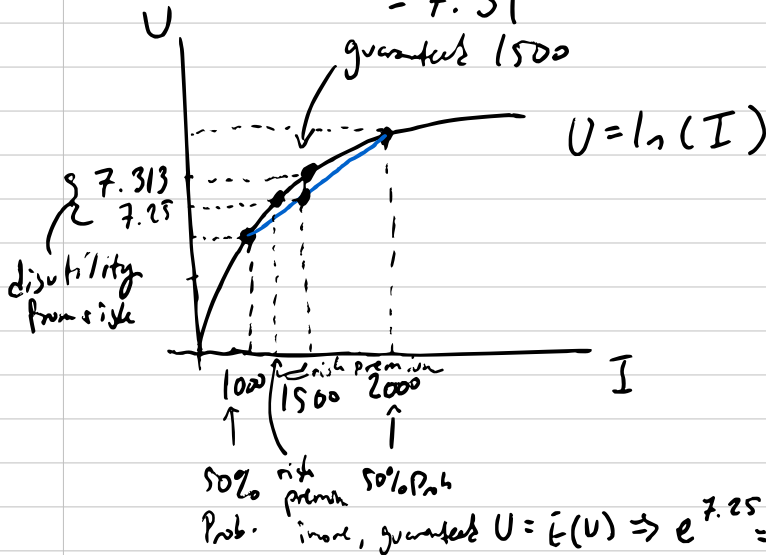 = 7.31
U
guaranteed 1500
U = ln(I)
7.313
7.25
disutility
from risk
risk premium
1000 1500 2000
I
50%
Prob.
risk
premium
50% Prob
guaranteed U = E(U) ⇒ e^7.25 =